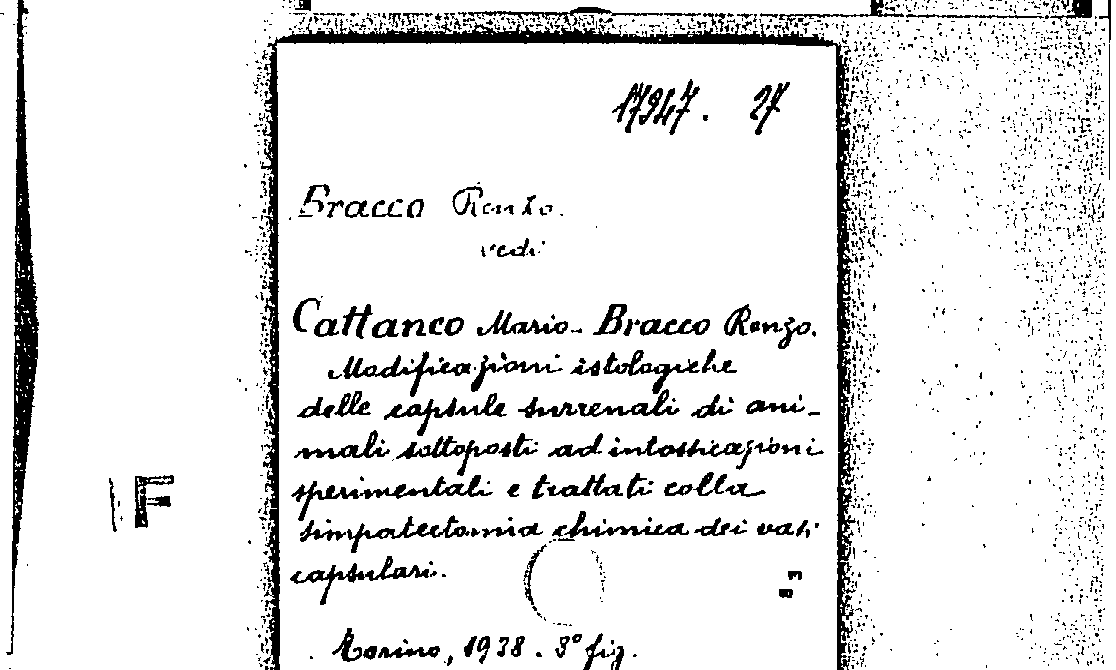 17947. 27
Bracco Renzo.
vedi
Cattaneo Mario - Bracco Renzo.
Modificazioni istologiche
delle capsule surrenali di ani-
mali sottoposti ad intossicazioni
sperimentali e trattati colla
simpatectomia chimica dei vasi
capsulari.
Torino, 1938. 8° fig.